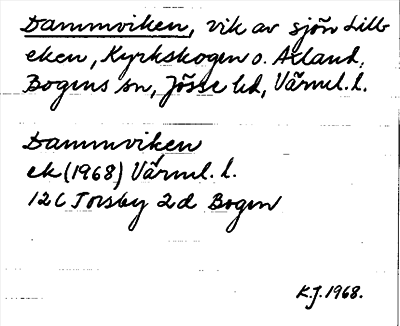 Dammviken, vik av sjön Lill-
eken, Kyrkskogen o. Axland,
Bogens sn, Jösse hd, Värml. l.
Dammviken
ek (1968) Värml. l.
12C Torsby 2d Bogen
K.J. 1968.